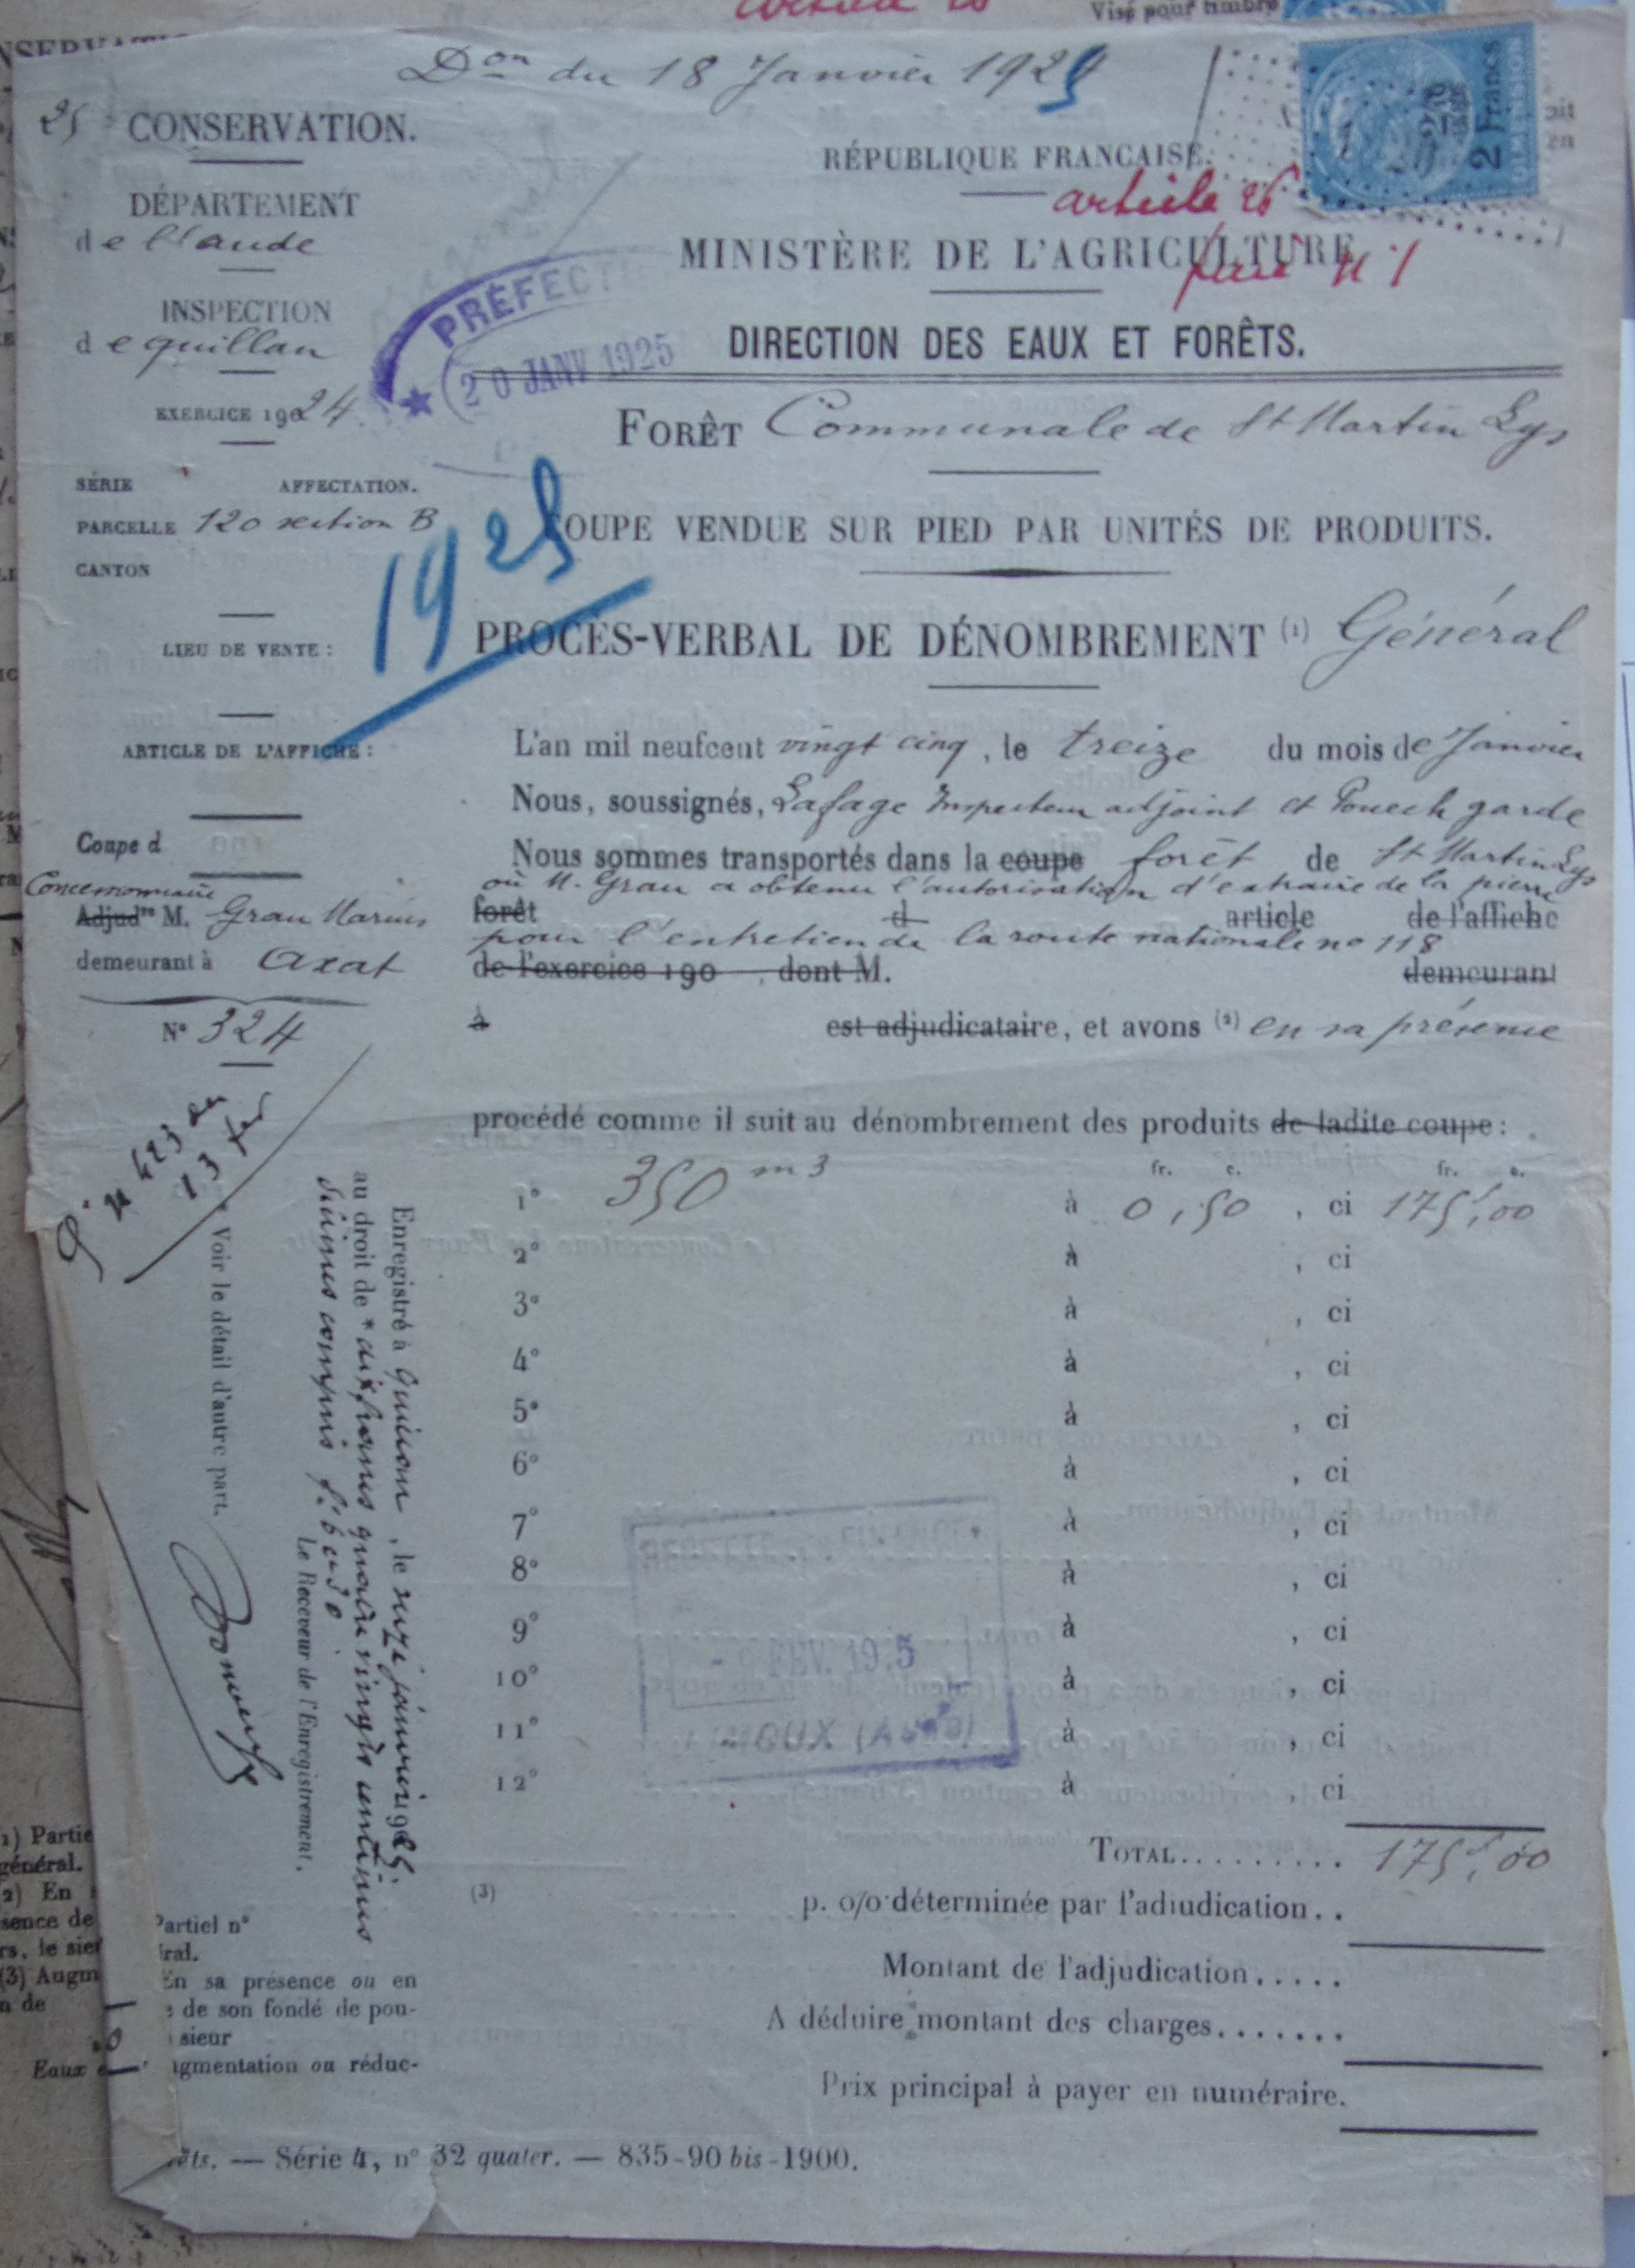 Visé pour timbre
Don du 18 Janvier 1925
25 CONSERVATION.
DÉPARTEMENT
de l'aude
INSPECTION
de quillan
EXERCICE 1924
SÉRIE AFFECTATION.
PARCELLE 120 section B
CANTON
LIEU DE VENTE :
ARTICLE DE L'AFFICHE :
Coupe d
Concessionnaire
Adjudre M. Grau Marius
demeurant à Axat
N° 324
2 Francs
RÉPUBLIQUE FRANCAISE.
article 26
MINISTÈRE DE L'AGRICULTURE
n° 1
PRÉFECT
20 JANV 1925
DIRECTION DES EAUX ET FORÊTS.
FORÊT Communale de St Martin Lys
1925
COUPE VENDUE SUR PIED PAR UNITÉS DE PRODUITS.
PROCÈS-VERBAL DE DÉNOMBREMENT (1) Général
L'an mil neufcent vingt cinq, le treize du mois de Janvier
Nous, soussignés, Lafage Inspecteur adjoint et Pouech garde
Nous sommes transportés dans la coupe forêt de St Martin Lys
où M. Grau a obtenu l'autorisation d'extraire de la pierre
forêt d article de l'affiche
pour l'entretien de la route nationale no 118
de l'exercice 190 , dont M. demeurant
à est adjudicataire, et avons (2) en sa présence
procédé comme il suit au dénombrement des produits de ladite coupe :
fr. c. fr. c.
1° 350 m3 à 0,50 , ci 175f,00
2° à , ci
3° à , ci
4° à , ci
5° à , ci
6° à , ci
7° à , ci
8° à , ci
9° à , ci
10° à , ci
11° à , ci
12° à , ci
TOTAL......... 175f,00
(3) p. o/o déterminée par l'adjudication..
Montant de l'adjudication.....
A déduire montant des charges.......
Prix principal à payer en numéraire.
n 423 du
13 fer
Enregistré à Quillan, le seize janvier 1925.
au droit de * dix francs quatre vingts centimes
décimes compris
Le Receveur de l'Enregistrement,
* Voir le détail d'autre part.
FEV. 19 5
LIMOUX (Aude)
Partiel n°
ral.
En sa présence ou en
de son fondé de pou-
sieur
gmentation ou réduc-
êts. — Série 4, n° 32 quater. — 835-90 bis-1900.
1) Partie
général.
2) En
sence de
rs, le sieu
(3) Augm
n de
Eaux